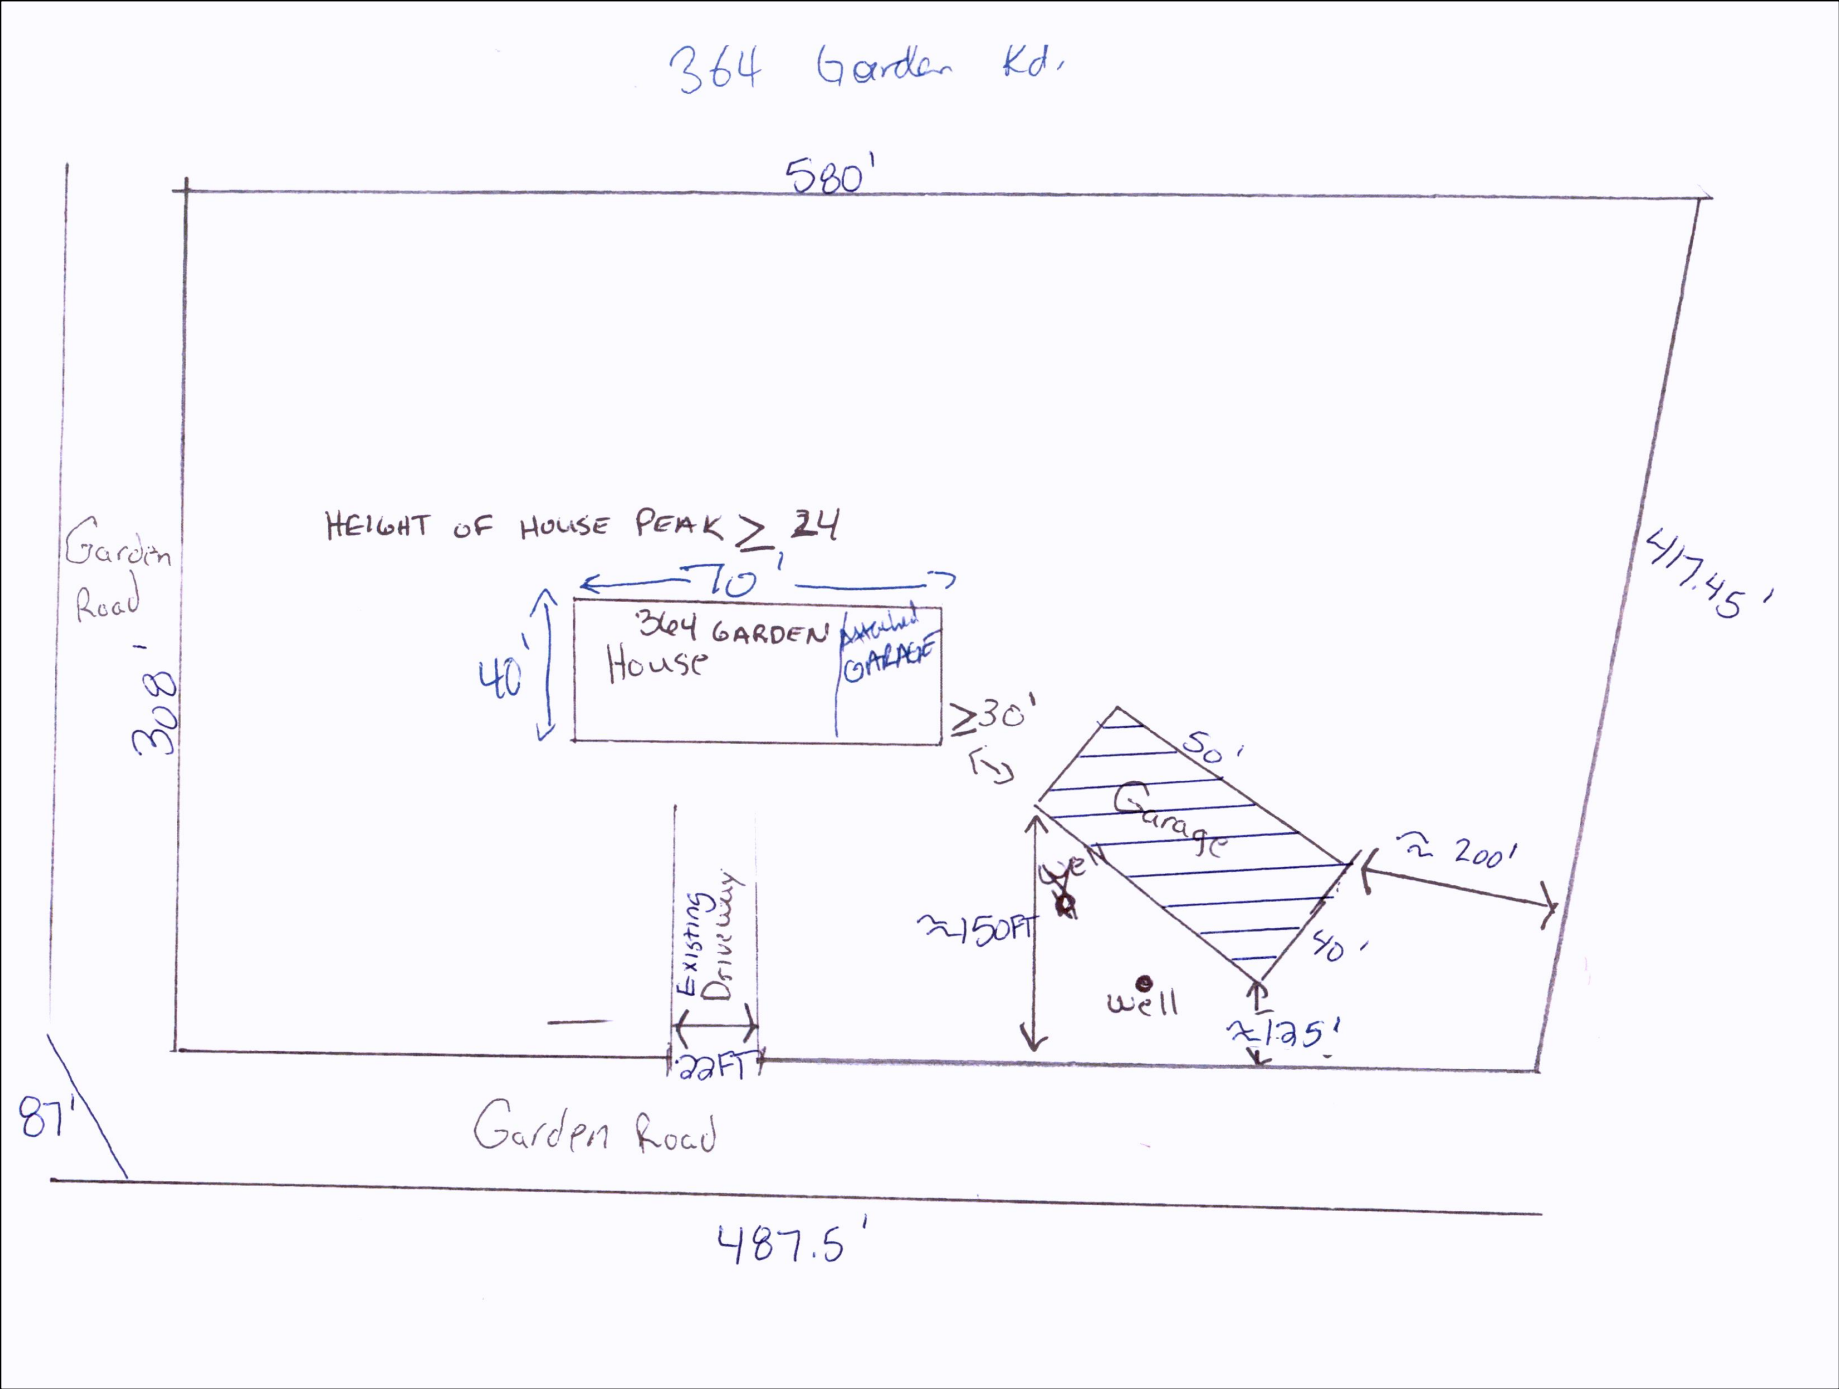 364 Garden Rd.
580'
Garden
Road
308'
417.45'
HEIGHT OF HOUSE PEAK ≥ 24
70'
40'
364 GARDEN
House
Attached
GARAGE
≥30'
50'
Garage
≈ 200'
well
≈150FT
40'
Existing
Driveway
well
≈125'
22FT
87'
Garden Road
487.5'